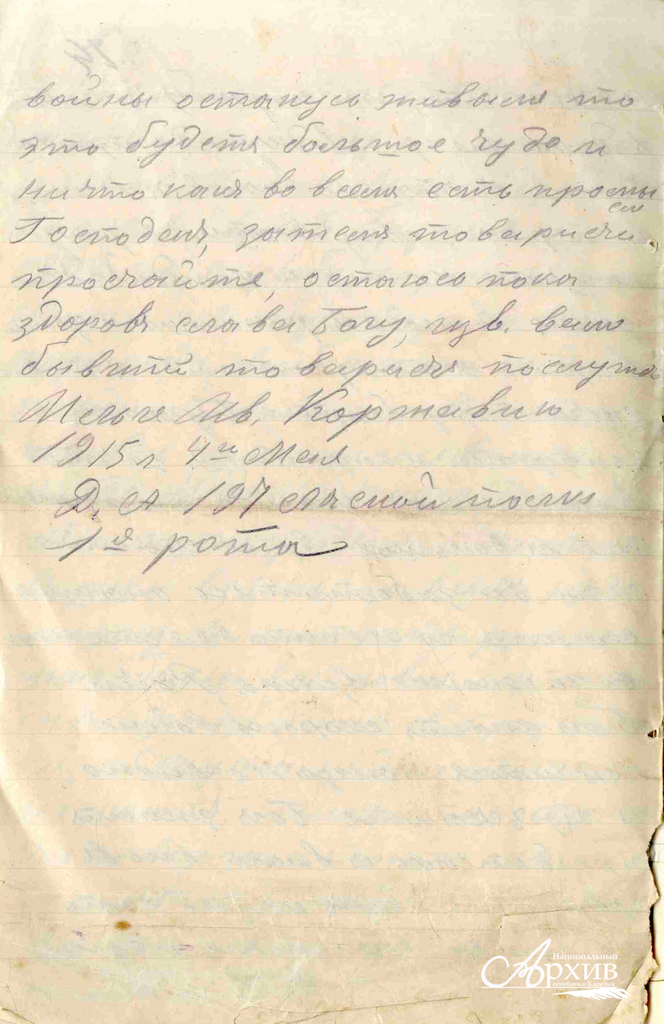 войны останусь живым то
это будетъ большое чудо и
ни что какъ во всемъ есть промы
сел
Господень, затемъ товарищи
прощайте, остаюсь пока
здоровъ слава Богу, изв. вамъ
бывший товарищъ по служб
Ив. Коржавин
1915 г 4го Мая
Д. А 197 Лесной полкъ
1я рота
Национальный
Архив
Республики Карелия